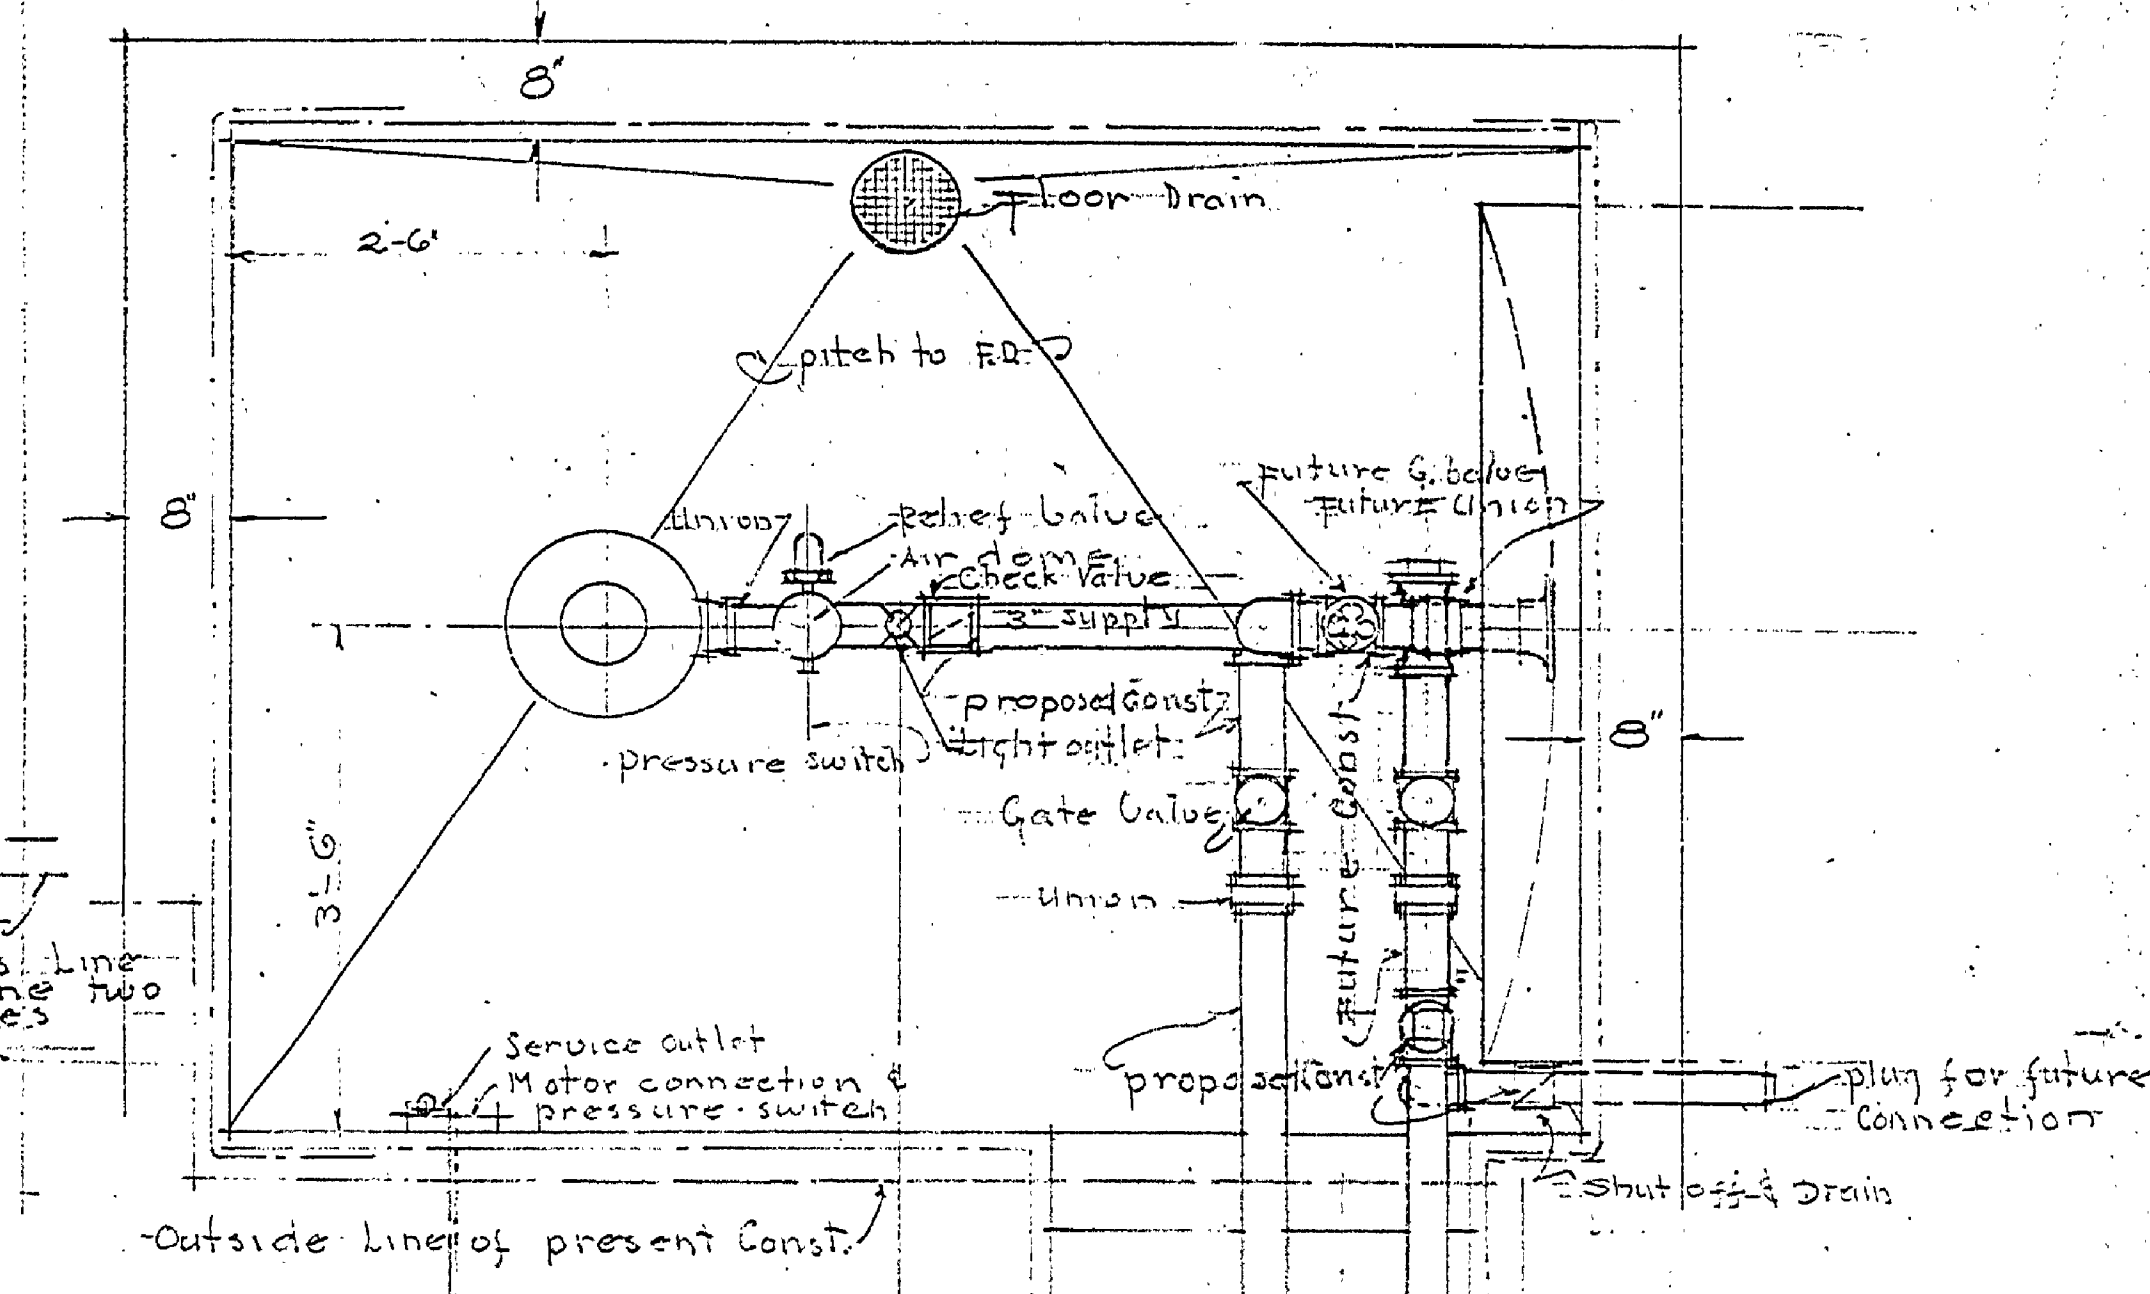 8"
Floor Drain
2'-6"
pitch to F.D.
Future G. Valve
Future Union
8"
Union
Relief Valve
Air dome
Check Valve
3" supply
proposed Const.
Light outlet
pressure switch
8"
Gate Valve
Future Const
3'-6"
Union
s Line
ne two
es
Service outlet
Motor connection &
pressure switch
proposed Const
plug for future
Connection
Shut off & Drain
Outside Line of present Const.